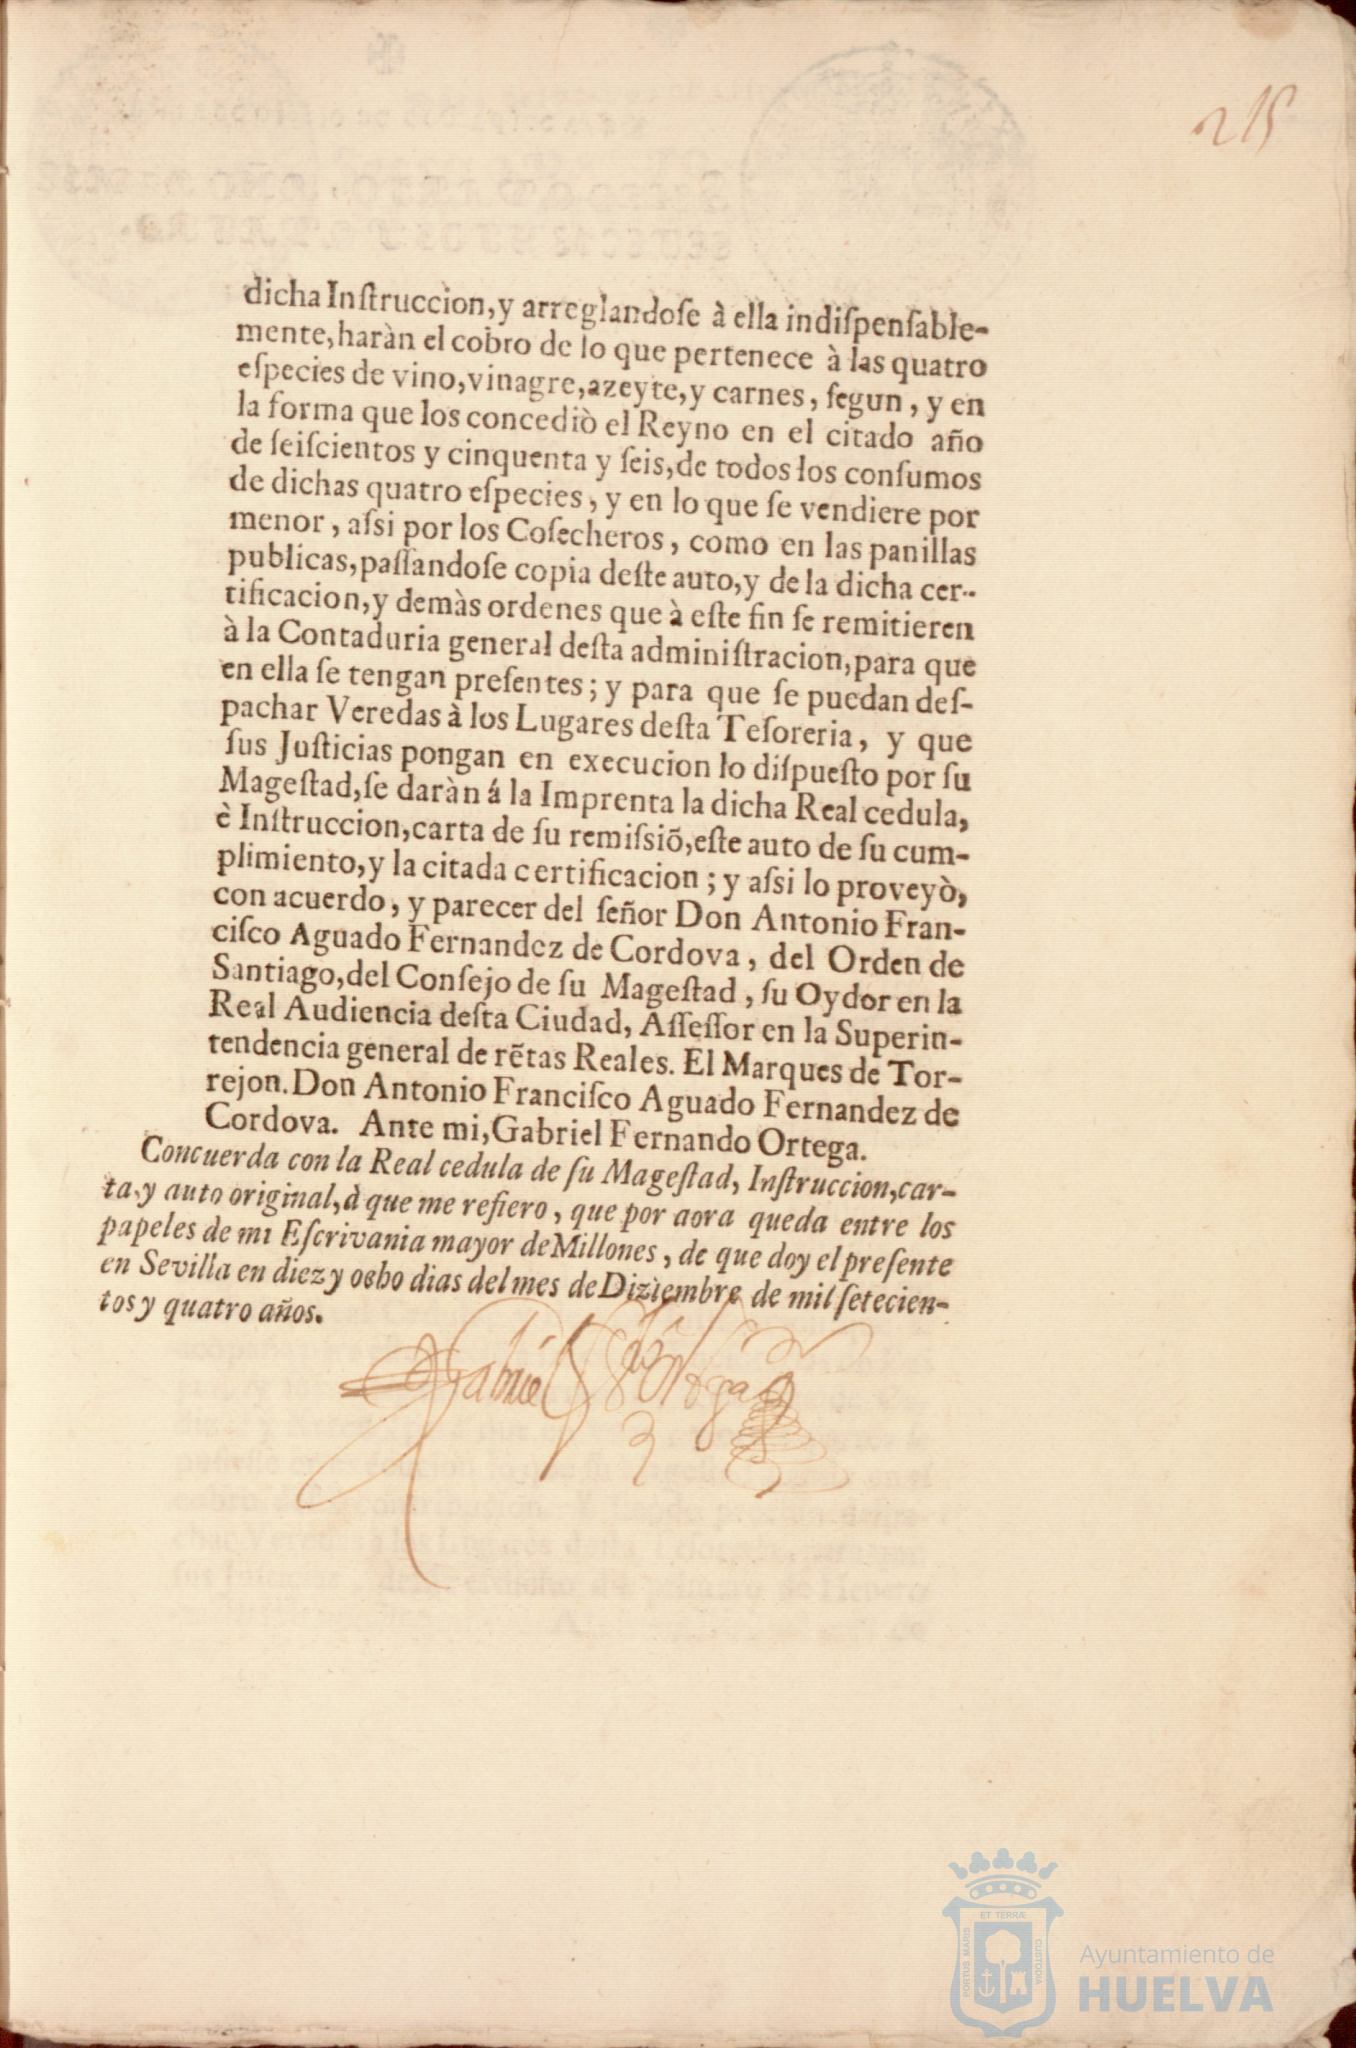 215
dicha Instruccion, y arreglandose à ella indispensable-
mente, haràn el cobro de lo que pertenece à las quatro
especies de vino, vinagre, azeyte, y carnes, segun, y en
la forma que los concediò el Reyno en el citado año
de seiscientos y cinquenta y seis, de todos los consumos
de dichas quatro especies, y en lo que se vendiere por
menor, assi por los Cosecheros, como en las panillas
publicas, passandose copia deste auto, y de la dicha cer-
tificacion, y demàs ordenes que à este fin se remitieren
à la Contaduria general desta administracion, para que
en ella se tengan presentes; y para que se puedan des-
pachar Veredas à los Lugares desta Tesoreria, y que
sus Justicias pongan en execucion lo dispuesto por su
Magestad, se daràn á la Imprenta la dicha Real cedula,
è Instruccion, carta de su remissiõ, este auto de su cum-
plimiento, y la citada certificacion; y assi lo proveyò,
con acuerdo, y parecer del señor Don Antonio Fran-
cisco Aguado Fernandez de Cordova, del Orden de
Santiago, del Consejo de su Magestad, su Oydor en la
Real Audiencia desta Ciudad, Assessor en la Superin-
tendencia general de rẽtas Reales. El Marques de Tor-
rejon. Don Antonio Francisco Aguado Fernandez de
Cordova. Ante mi, Gabriel Fernando Ortega.
Concuerda con la Real cedula de su Magestad, Instruccion, car-
ta, y auto original, à que me refiero, que por aora queda entre los
papeles de mi Escrivania mayor de Millones, de que doy el presente
en Sevilla en diez y ocho dias del mes de Diziembre de mil setecien-
tos y quatro años.
Gabriel Ortega
PORTUS MARIS
ET TERRÆ
CUSTODIA
Ayuntamiento de
HUELVA